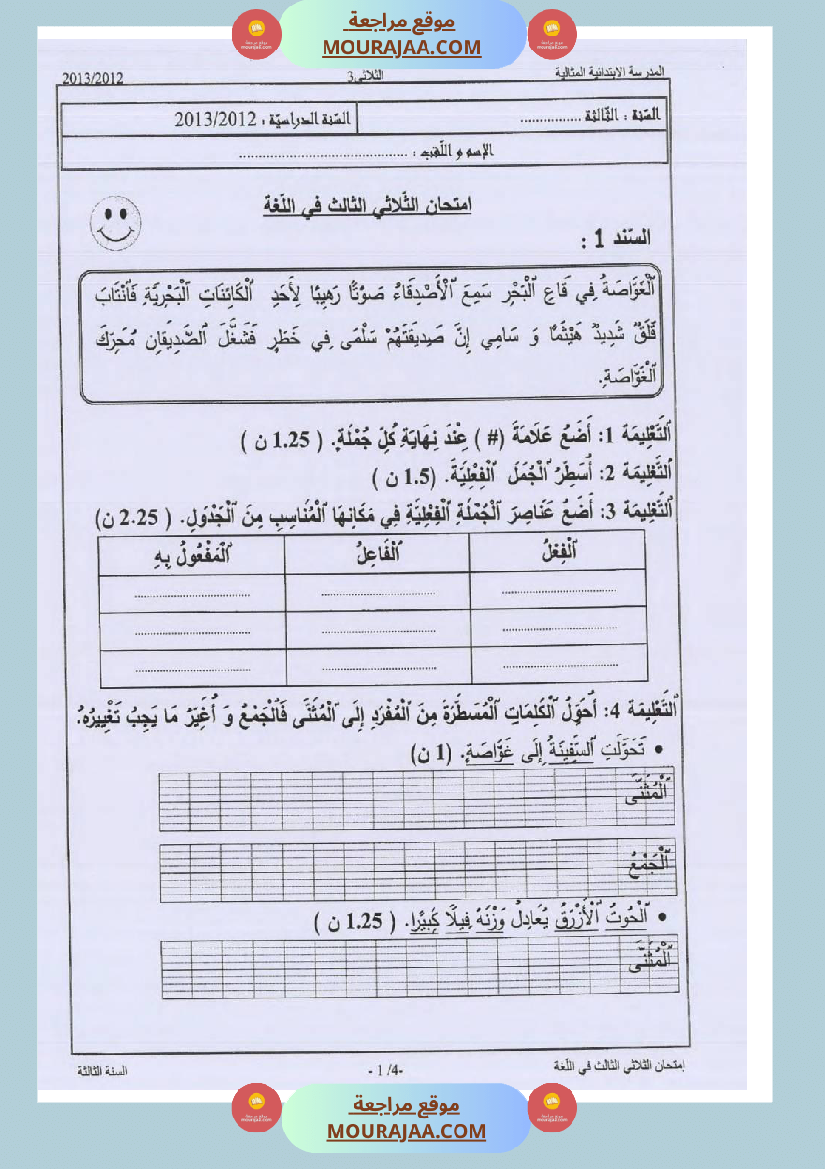 موقع مراجعة
MOURAJAA.COM
المدرسة الابتدائية المثالية الثلاثي3 2013/2012
السّنة : الثّالثة ................ السّنة الدراسيّة : 2013/2012
الإسم و اللّقب : ...........................................
امتحان الثّلاثي الثالث في اللّغة
السّند 1 :
اَلْغَوَّاصَةُ فِي قَاعِ اَلْبَحْرِ سَمِعَ اَلْأَصْدِقَاءُ صَوْتًا رَهِيبًا لِأَحَدِ اَلْكَائِنَاتِ اَلْبَحْرِيَّةِ فَاُنْتَابَ
قَلَقٌ شَدِيدٌ هَيْثَمًا وَ سَامِي إِنَّ صَدِيقَتَهُمْ سَلْمَى فِي خَطَرٍ فَشَغَّلَ اَلصَّدِيقَانِ مُحَرِّكَ
اَلْغَوَّاصَةِ.
اَلتَّعْلِيمَة 1: أَضَعُ عَلَامَةَ (# ) عِنْدَ نِهَايَةِ كُلِّ جُمْلَةٍ. ( 1.25 ن )
اَلتَّعْلِيمَة 2: أُسَطِّرُ اَلْجُمَلَ اَلْفِعْلِيَّةَ. (1.5 ن )
اَلتَّعْلِيمَة 3: أَضَعُ عَنَاصِرَ اَلْجُمْلَةِ اَلْفِعْلِيَّةِ فِي مَكَانِهَا اَلْمُنَاسِبِ مِنَ اَلْجَدْوَلِ. ( 2.25 ن)
اَلْفِعْلُ اَلْفَاعِلُ اَلْمَفْعُولُ بِهِ
.............................. .............................. ..............................
.............................. .............................. ..............................
.............................. .............................. ..............................
اَلتَّعْلِيمَة 4: أُحَوِّلُ اَلْكَلِمَاتِ اَلْمُسَطَّرَةَ مِنَ اَلْمُفْرَدِ إِلَى اَلْمُثَنَّى فَالْجَمْعِ وَ أُغَيِّرُ مَا يَجِبُ تَغْيِيرُهُ.
• تَحَوَّلَتِ اَلسَّفِينَةُ إِلَى غَوَّاصَةٍ. (1 ن)
اَلْمُثَنَّى
اَلْجَمْعُ
• اَلْحُوتُ اَلْأَزْرَقُ يُعَادِلُ وَزْنُهُ فِيلًا كَبِيرًا. ( 1.25 ن )
اَلْمُثَنَّى
إمتحان الثلاثي الثالث في اللّغة -1 /4- السنة الثالثة
موقع مراجعة
MOURAJAA.COM